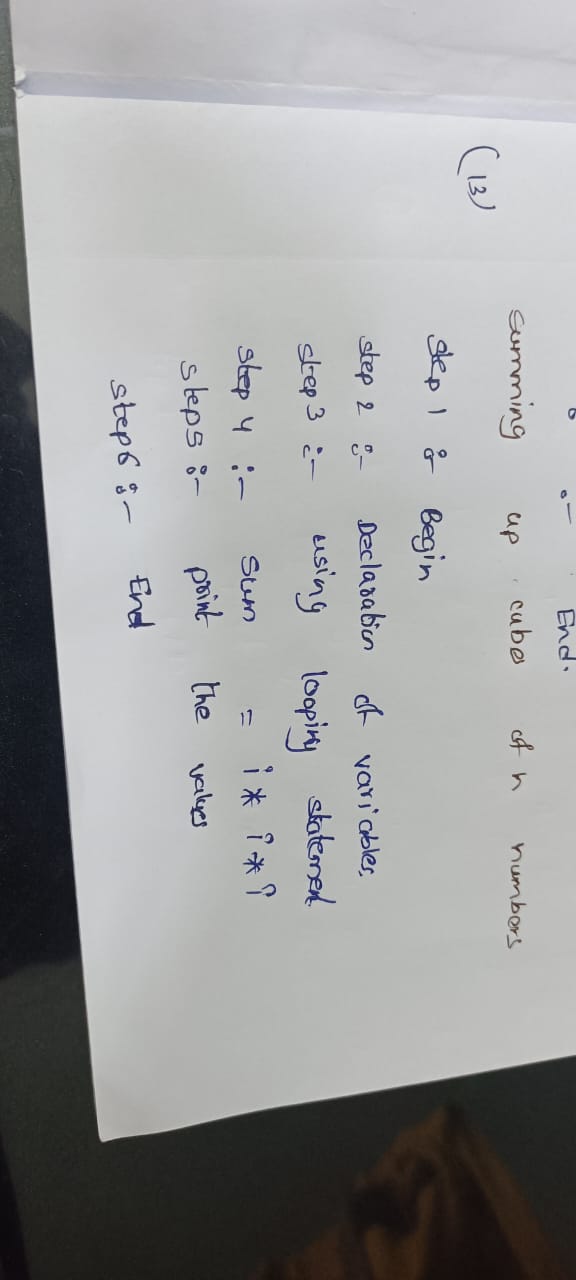 :- End.
(13)
Summing up cubes of n numbers
Step 1 :- Begin
Step 2 :- Declaration of variables.
Step 3 :- using looping statement
Step 4 :- Sum = i * i * i
Step 5 :- print the values
Step 6 :- End